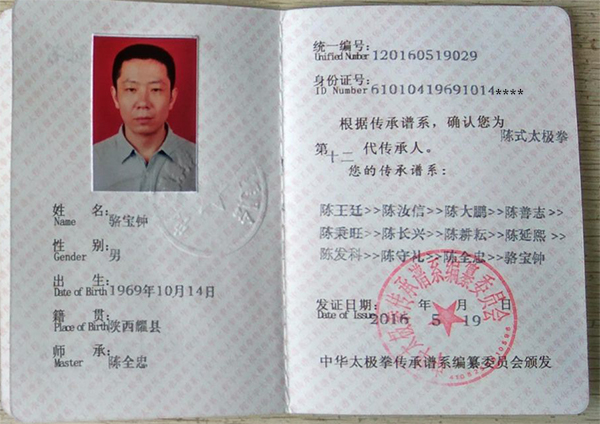 姓 名：
Name 骆宝钟
性 别：
Gender 男
出 生：
Date of Birth 1969年10月14日
籍 贯：
Place of Birth 陕西耀县
师 承：
Master 陈全忠
统一编号：
Unified Number 120160519029
身份证号：
ID Number 61010419691014****
根据传承谱系，确认您为
陈式太极拳
第十二代传承人。
您的传承谱系：
陈王廷>>陈汝信>>陈大鹏>>陈善志>>
陈秉旺>>陈长兴>>陈耕耘>>陈延熙>>
陈发科>>陈守礼>>陈全忠>>骆宝钟
发证日期： 年 月 日
Date of Issue 2016 5 19
中华太极拳传承谱系编纂委员会颁发